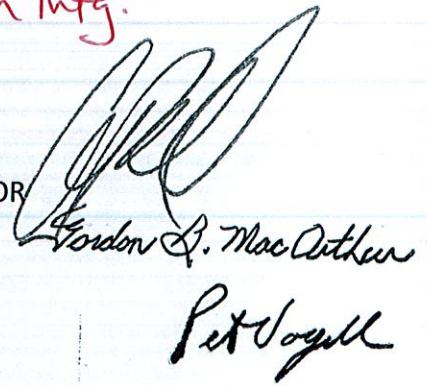 n mtg.
OR
Gordon B. MacArthur
Pet Vogell